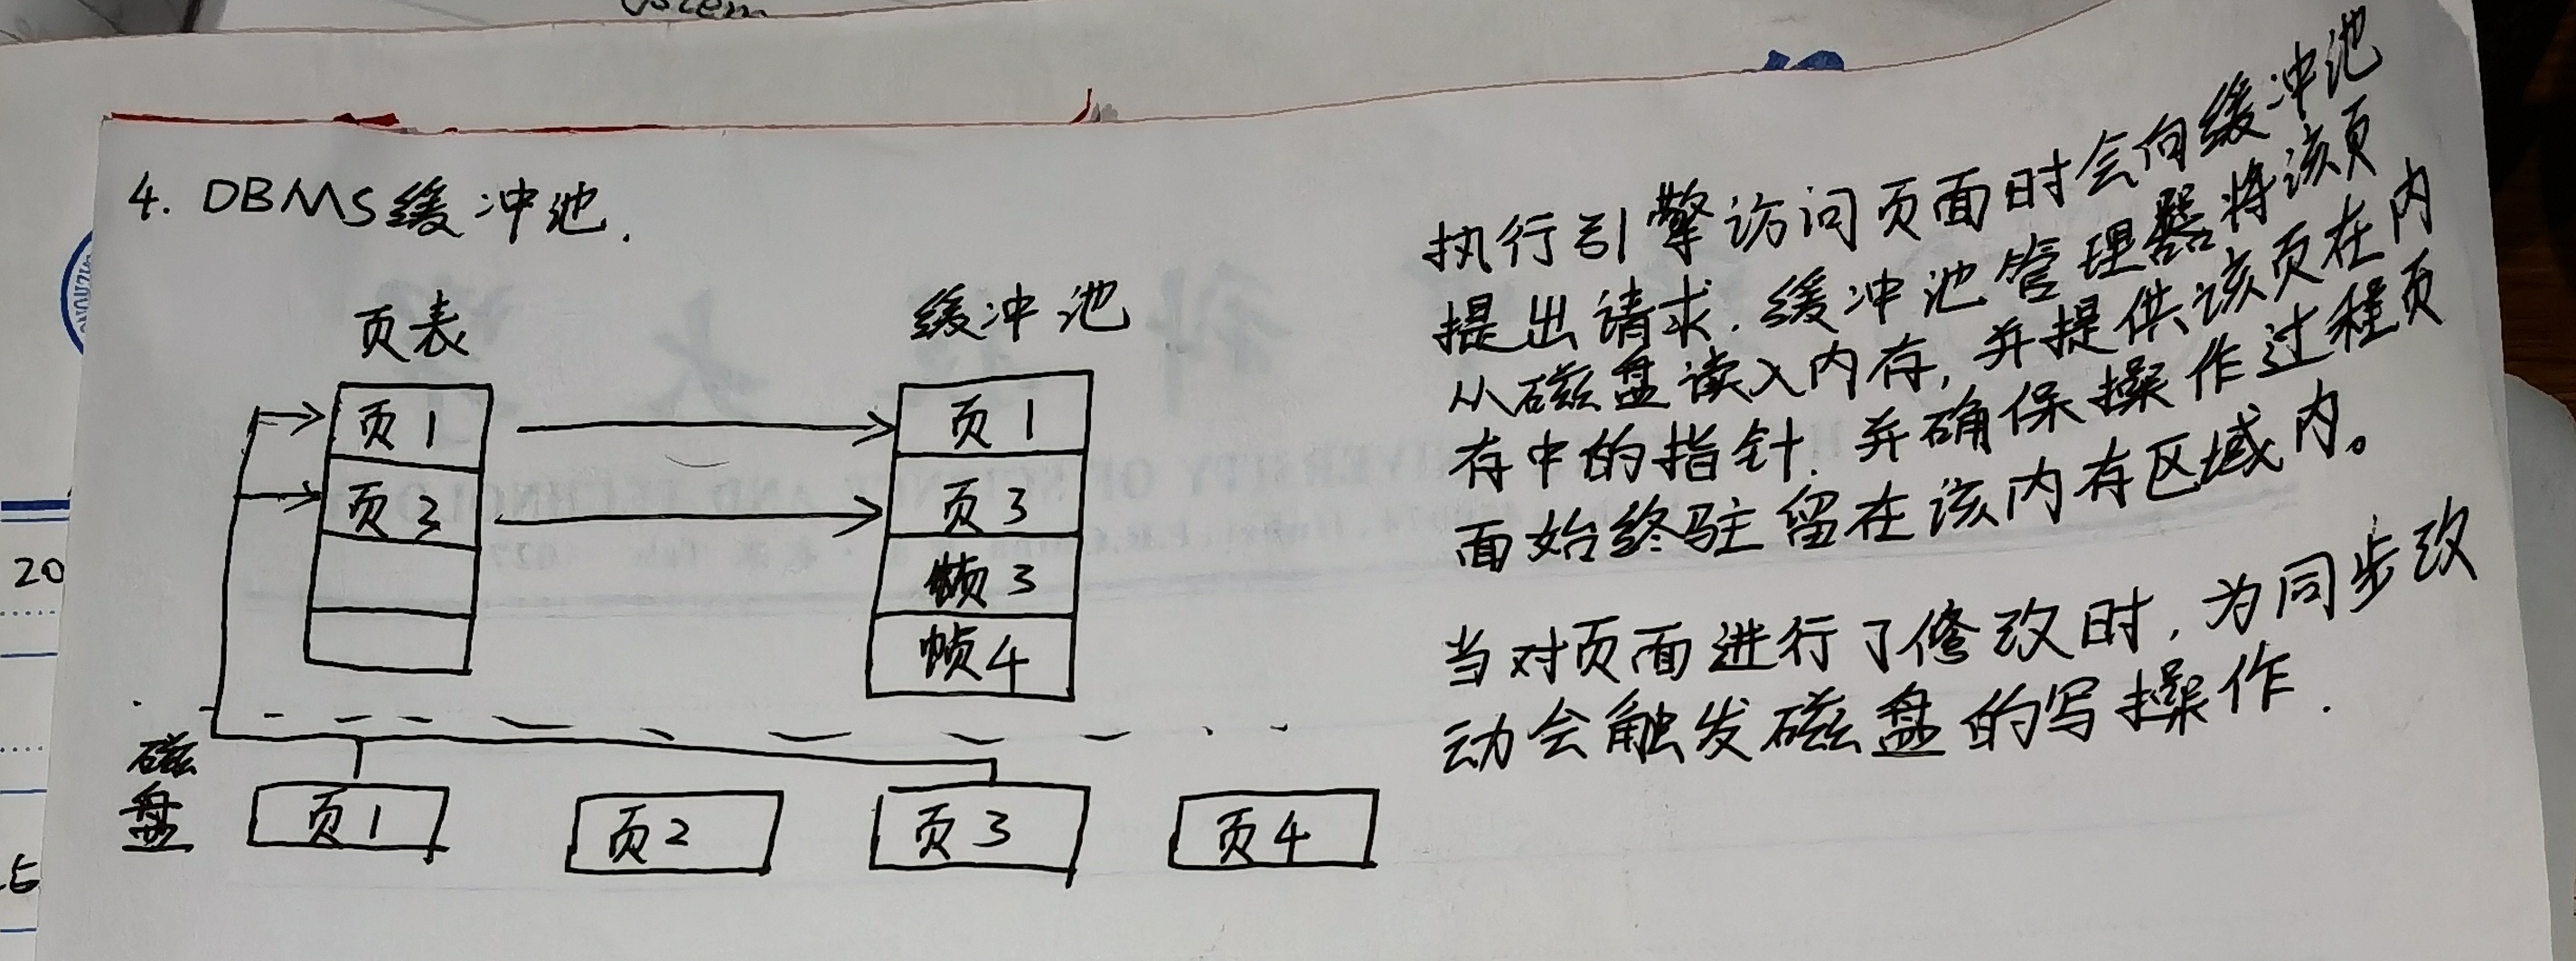 4. DBMS缓冲池.
页表
缓冲池
页1
页3
页1
页3
帧3
帧4
磁
盘
页1
页2
页3
页4
执行引擎访问页面时会向缓冲池
提出请求.缓冲池管理器将该页
从磁盘读入内存,并提供该页在内
存中的指针.并确保操作过程页
面始终驻留在该内存区域内。
当对页面进行了修改时,为同步改
动会触发磁盘的写操作.
20